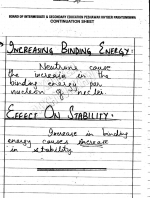 BOARD OF INTERMEDIATE & SECONDARY EDUCATION PESHAWAR KHYBER PAKHTUNKHWA
CONTINUATION SHEET
INCREASING BINDING ENERGY:
Neutrons cause
the increase in the
binding energy per
nucleon of nuclei.
EFFECT ON STABILITY:
Increase in binding
energy causes increase
in stability.